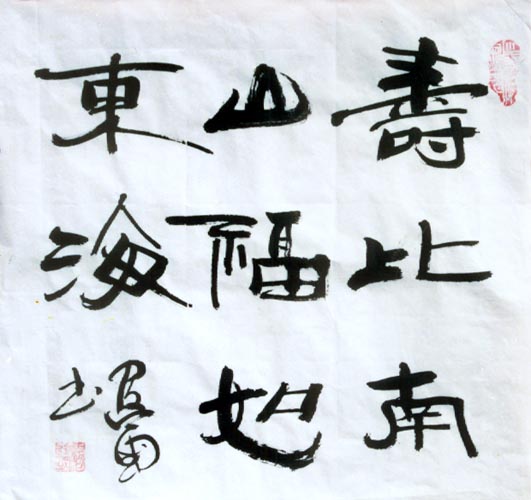 壽比南
山福如
東海
書